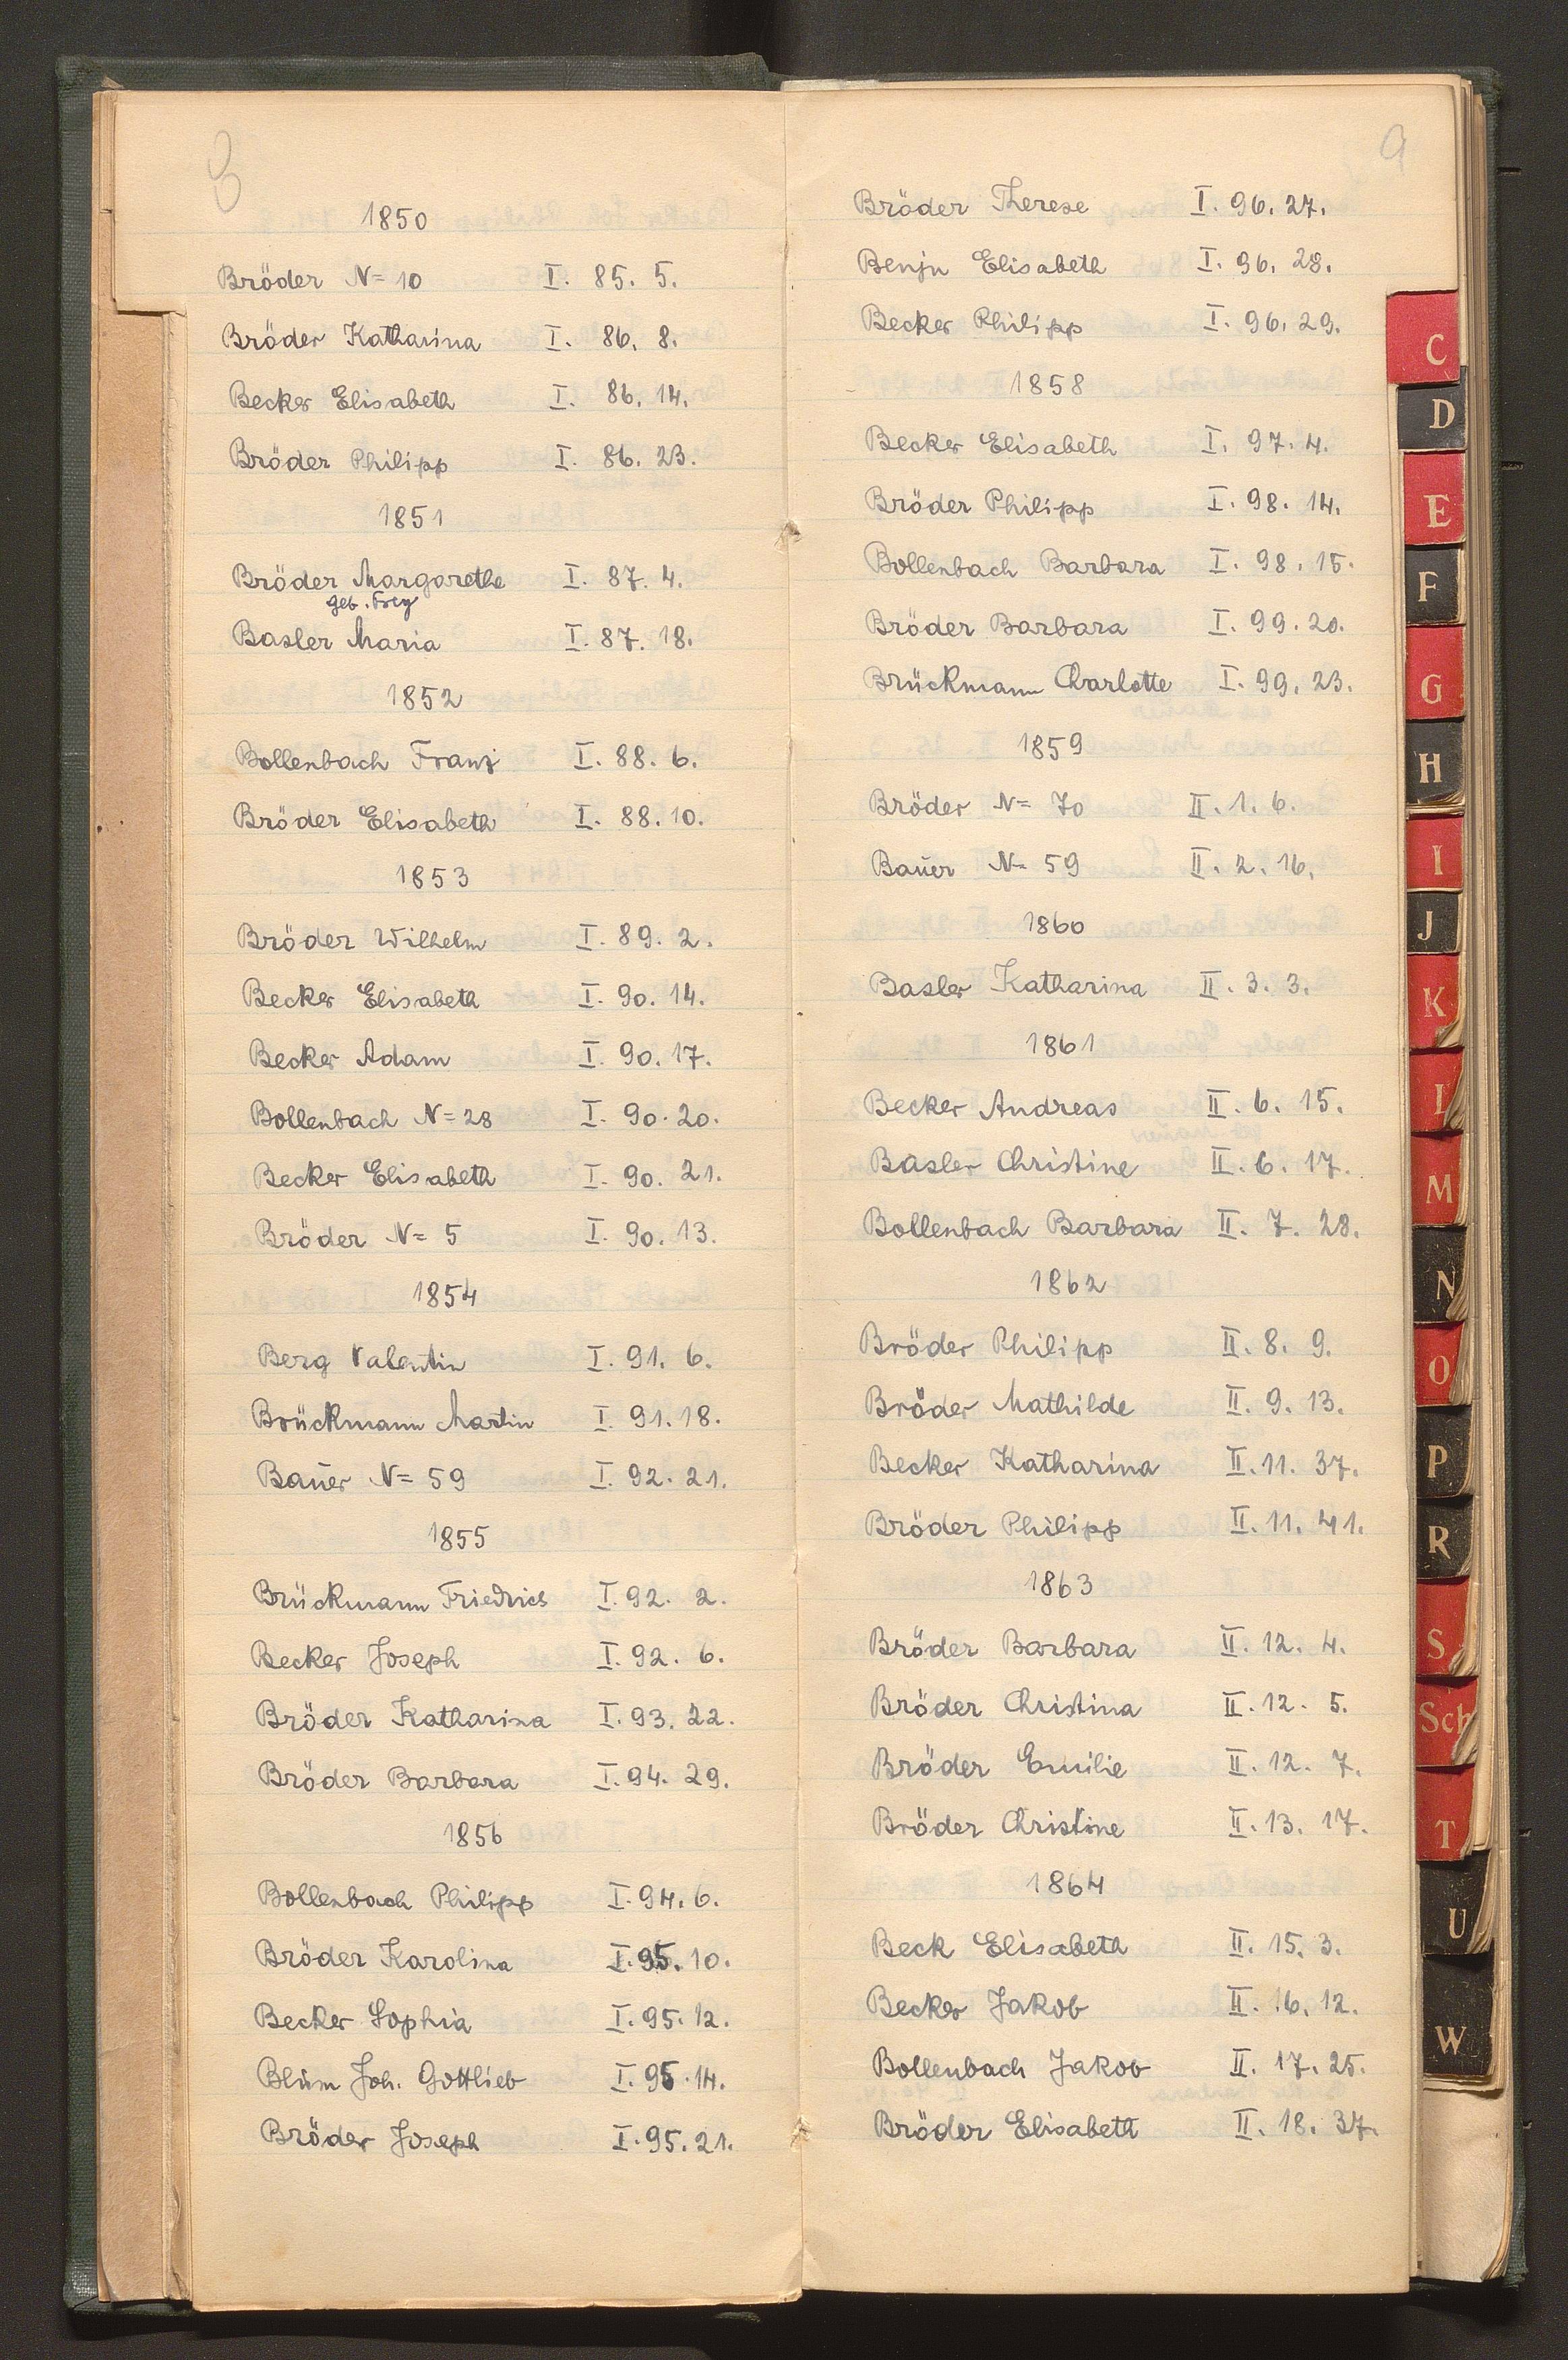 8
1850
Bröder N= 10 I. 85. 5.
Bröder Katharina I. 86. 8.
Becker Elisabeth I. 86. 14.
Bröder Philipp I. 86. 23.
1851
Bröder Margarethe I. 87. 4.
geb. Frey
Basler Maria I. 87. 18.
1852
Bollenbach Franz I. 88. 6.
Bröder Elisabeth I. 88. 10.
1853
Bröder Wilhelm I. 89. 2.
Becker Elisabeth I. 90. 14.
Becker Adam I. 90. 17.
Bollenbach N= 28 I. 90. 20.
Becker Elisabeth I. 90. 21.
Bröder N= 5 I. 90. 13.
1854
Berg Valentin I. 91. 6.
Brückmann Martin I. 91. 18.
Baŭer N= 59 I. 92. 21.
1855
Brückmann Friedrich I. 92. 2.
Becker Joseph I. 92. 6.
Bröder Katharina I. 93. 22.
Bröder Barbara I. 94. 29.
1856
Bollenbach Philipp I. 94. 6.
Bröder Karolina I. 95. 10.
Becker Sophia I. 95. 12.
Blŭm Joh. Gottlieb I. 95. 14.
Bröder Joseph I. 95. 21.
9
Bröder Therese I. 96. 27.
Benjn Elisabeth I. 96. 28.
Becker Philipp I. 96. 29.
1858
Becker Elisabeth I. 97. 4.
Bröder Philipp I. 98. 14.
Bollenbach Barbara I. 98. 15.
Bröder Barbara I. 99. 20.
Brückmann Charlotte I. 99. 23.
1859
Bröder N= 70 II. 1. 6.
Baŭer N= 59 II. 2. 16.
1860
Basler Katharina II. 3. 3.
1861
Becker Andreas II. 6. 15.
Basler Christine II. 6. 17.
Bollenbach Barbara II. 7. 28.
1862
Bröder Philipp II. 8. 9.
Bröder Mathilde II. 9. 13.
Becker Katharina II. 11. 37.
Bröder Philipp II. 11. 41.
1863
Bröder Barbara II. 12. 4.
Bröder Christina II. 12. 5.
Bröder Emilie II. 12. 7.
Bröder Christine II. 13. 17.
1864
Beck Elisabeth II. 15. 3.
Becker Jakob II. 16. 12.
Bollenbach Jakob II. 17. 25.
Bröder Elisabeth II. 18. 37.
C
D
E
F
G
H
I
J
K
L
M
N
O
P
R
S
Sch
T
U
W